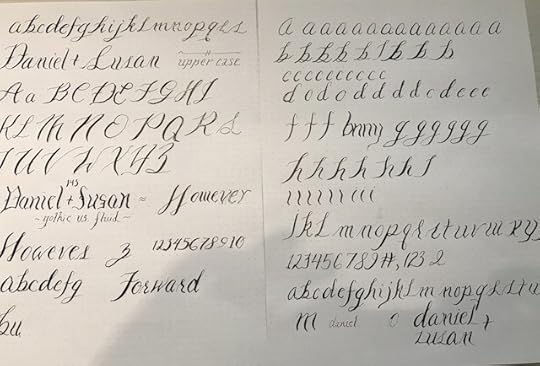 abcdefghijklmnopqrs
Daniel + Susan upper case
A a B C D E F G H I
K L M N O P Q R S
T U V W X Y Z
Daniel + Susan ~ However
~ gothic vs. fluid ~
Howeves 3 12345678910
abcdefg Forward
bu
a a a a a a a a a a a a a
b b b b b b b b
c c c c c c c c c c
d o d o d d d d c d e e e
f f f bnm g g g g g g
h h h h h h
J k L m n o p q r s t u v w x y
123456789#, 123 2
abcdefghijklmnopqrstu
m daniel o daniel +
susan